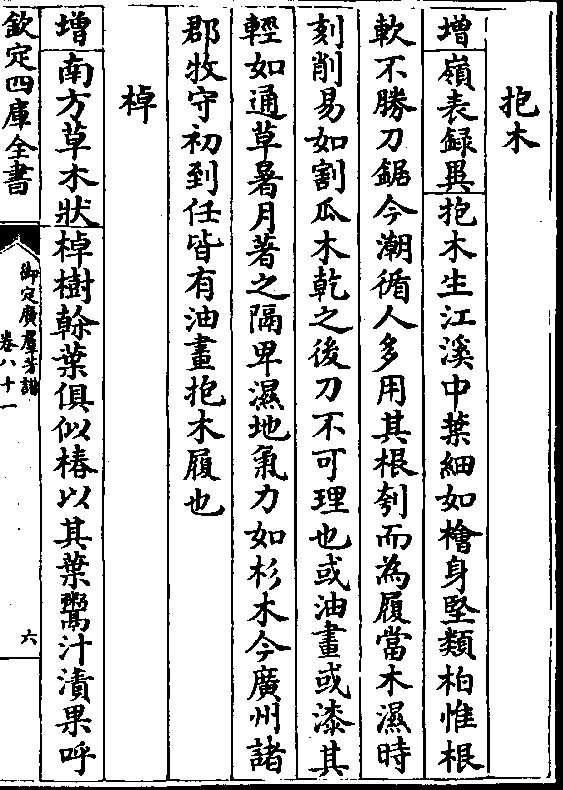 抱木
增嶺表録異抱木生江溪中葉細如檜身堅類柏惟根
軟不勝刀鋸今潮循人多用其根刳而為履當木濕時
刻削易如割瓜木乾之後刀不可理也或油畫或漆其
輕如通草暑月著之隔卑濕地氣力如杉木今廣州諸
郡牧守初到任皆有油畫抱木履也
棹
增南方草木狀棹樹榦葉俱似椿以其葉鬻汁漬果呼
欽定四庫全書
御定廣羣芳譜
卷八十一
六